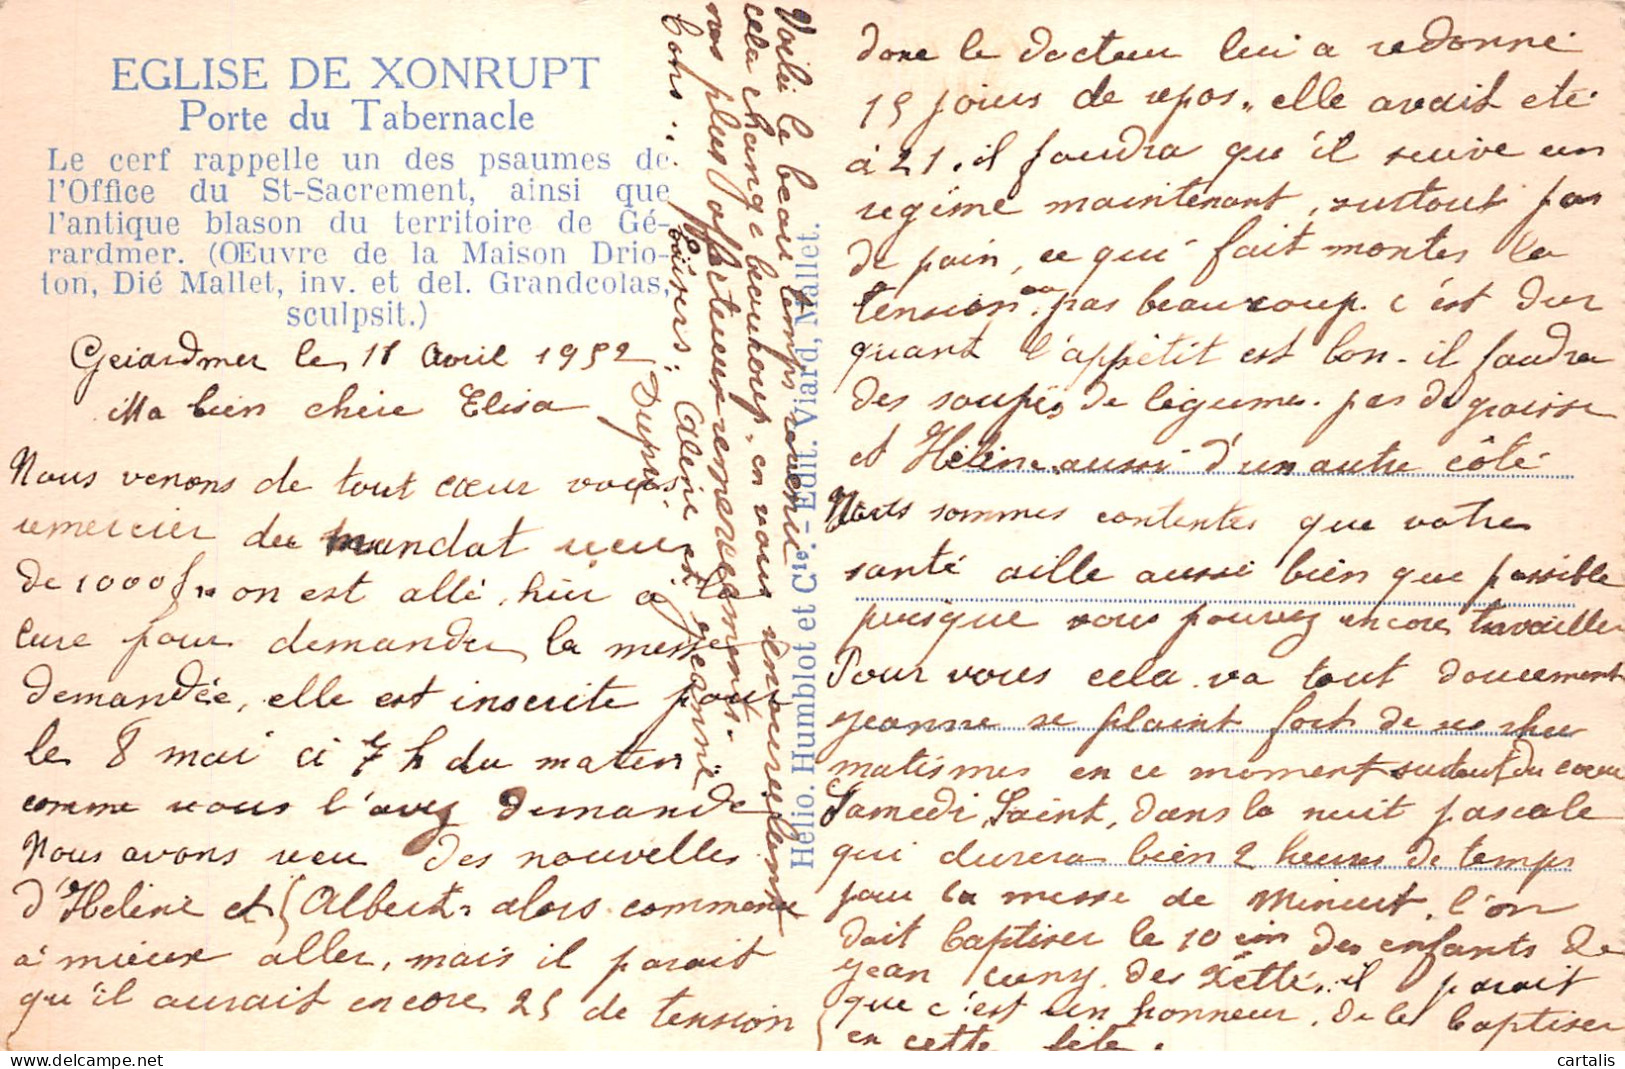 EGLISE DE XONRUPT
Porte du Tabernacle
Le cerf rappelle un des psaumes de
l'Office du St-Sacrement, ainsi que
l'antique blason du territoire de Gé-
rardmer. (Œuvre de la Maison Drio-
ton, Dié Mallet, inv. et del. Grandcolas,
sculpsit.)
Gérardmer le 18 Avril 1952
Ma bien chère Elisa
Nous venons de tout cœur vous
remercier du mandat reçu
de 1000f, on est allé, hier à
cure pour demander la messe
demandée, elle est inscrite pour
le 8 mai à 7 h du matin
comme vous l'avez demandé
Nous avons reçu des nouvelles
d'Hélène et Albert, alors comment
a mieux aller, mais il parait
qu'il aurait encore 25 de tension
donc le docteur lui a redonné
15 jours de repos, elle avait été
à 21. il faudra qu'il suive un
régime maintenant, surtout pas
de pain, ce qui fait monter la
tension ou pas beaucoup. c'est dur
quant l'appétit est bon. il faudra
des soupes de légumes. pas de graisse
et Hélène aussi d'un autre côté
Nous sommes contentes que votre
santé aille aussi bien que possible
puisque vous pouvez encore travailler
Pour vous cela va tout doucement
Jeanne se plaint fort de ses rhu
matismes en ce moment surtout du cœur
Samedi Saint, dans la nuit pascale
qui durera bien 2 heures de temps
pour la messe de Minuit, l'on
doit baptiser le 10 des enfants de
Jean Cuny des Xettes, il parait
que c'est un honneur, de le baptiser
en cette fête.
Voilà le beau temps revenu
cela change beaucoup. en vous renouvelant
nos plus affectueux remerciements.
Bons baisers. Aline et Jeanne
Dupré
Hélio. Humblot et Cie. - Edit. Viard, Mallet.
cartalis